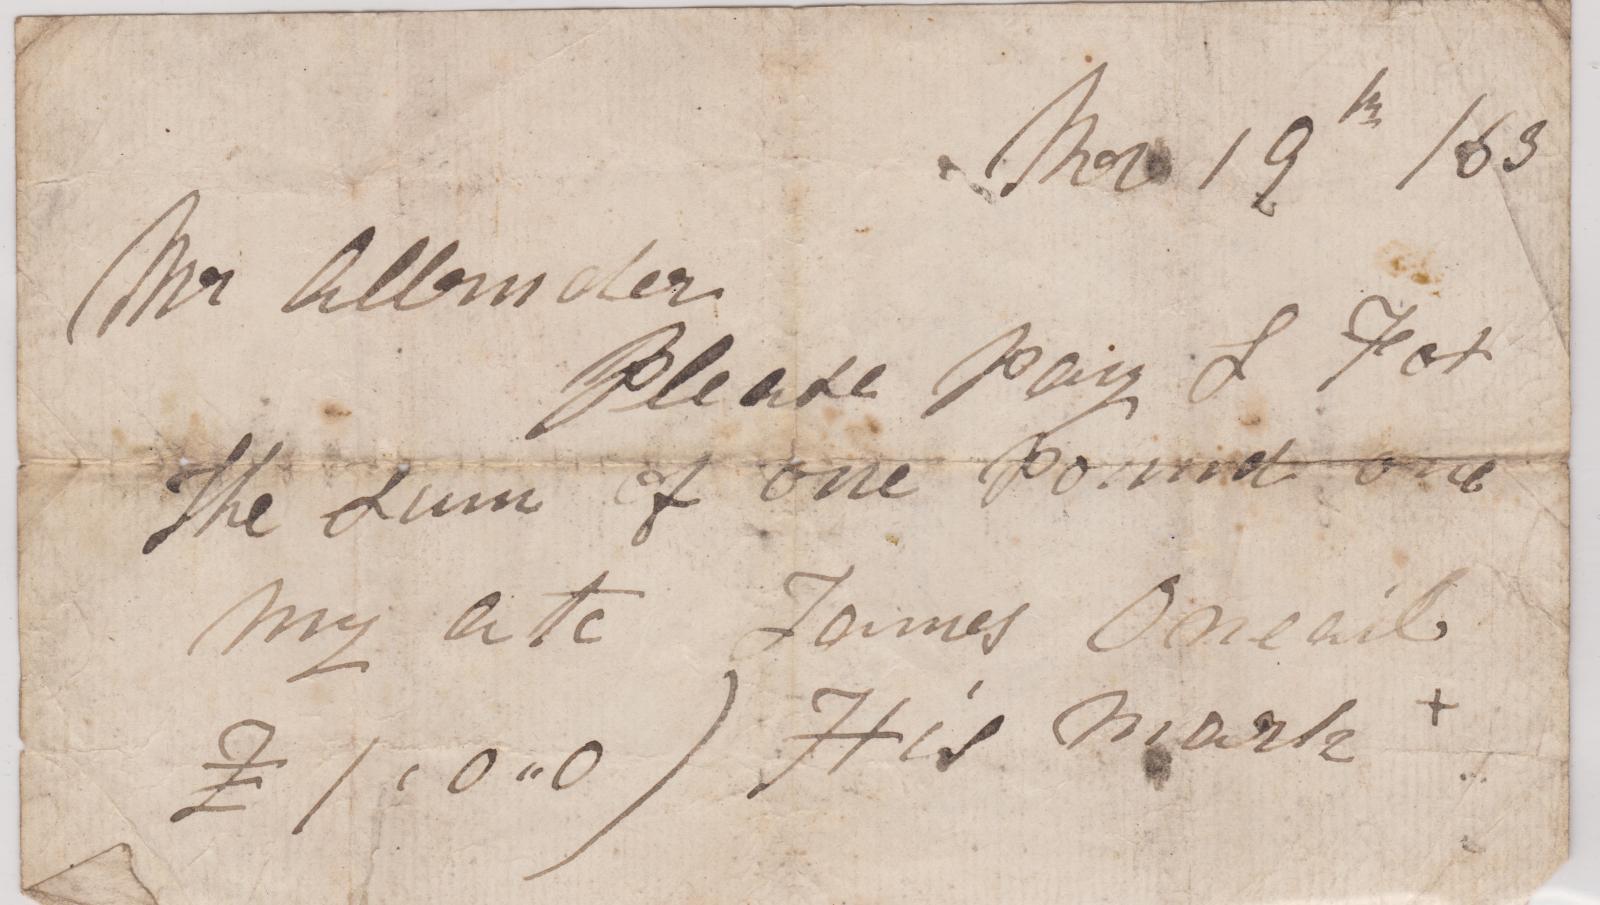 Nov 19th /63
Mr Allender
Please pay S Fox
The sum of one pound one
my atc James Oneail
£ 1,,0,,0) His mark +